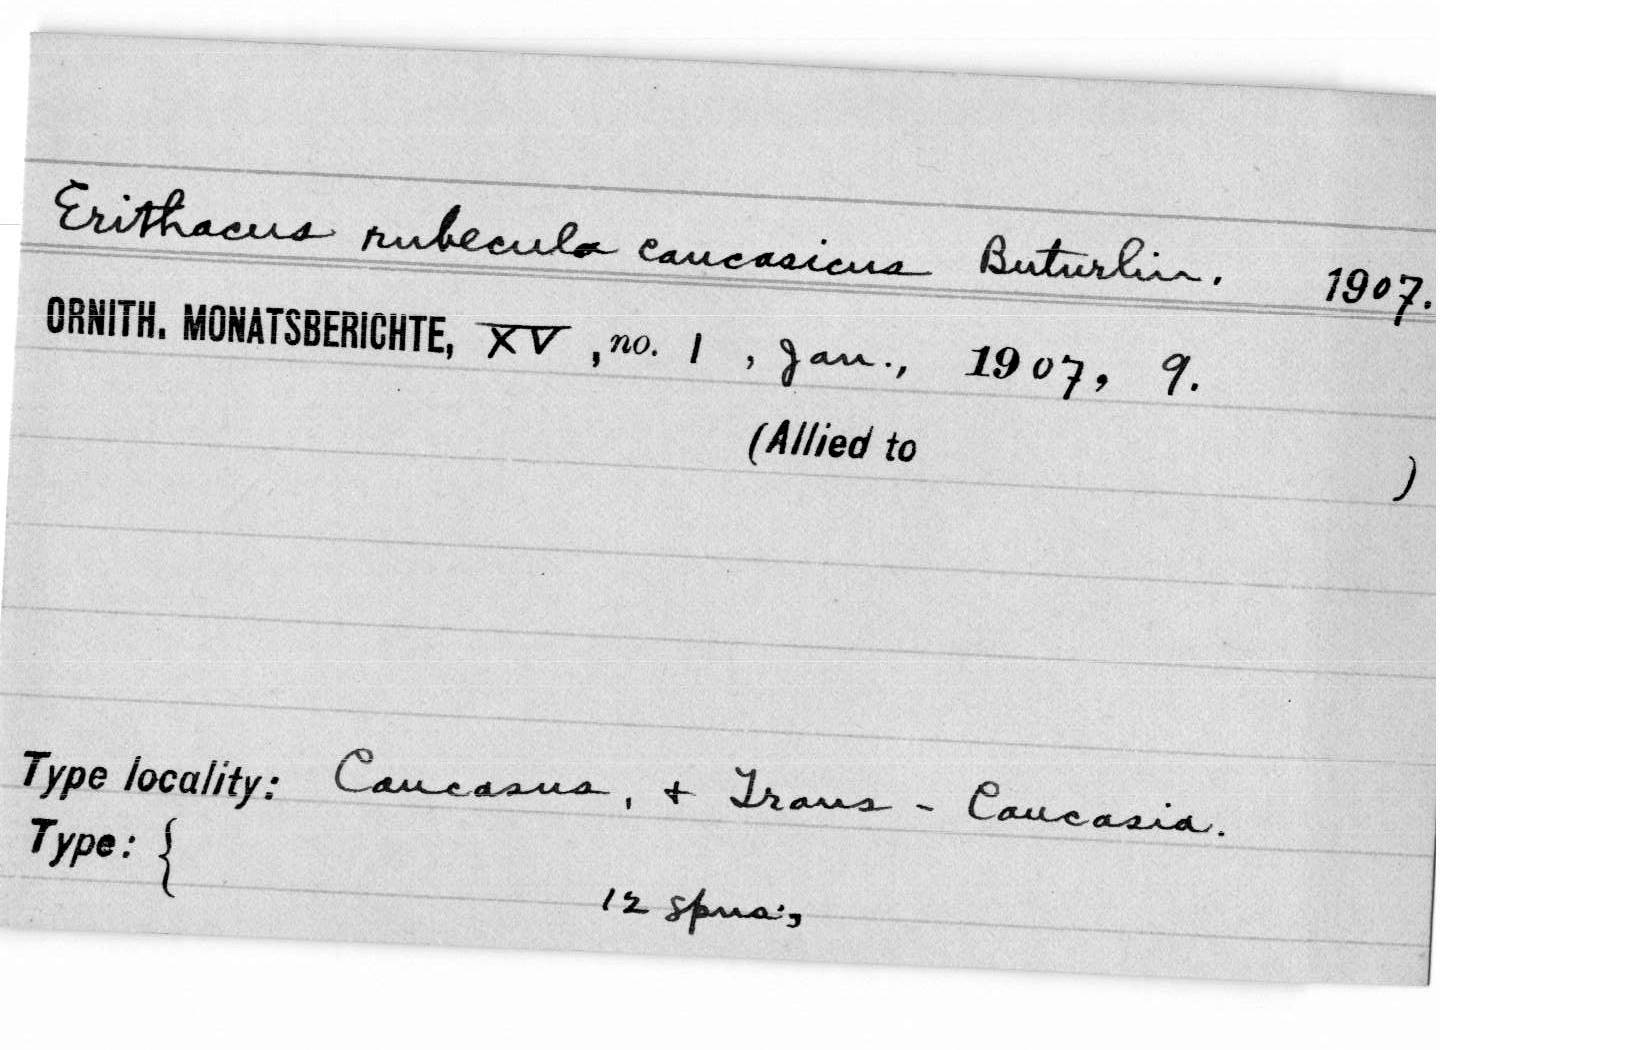 Erithacus rubecula caucasicus Buturlin. 1907.
ORNITH. MONATSBERICHTE, XV, no. 1, Jan., 1907, 9.
(Allied to )
Type locality: Caucasus, + Trans-Caucasia.
Type: {
12 spns.,